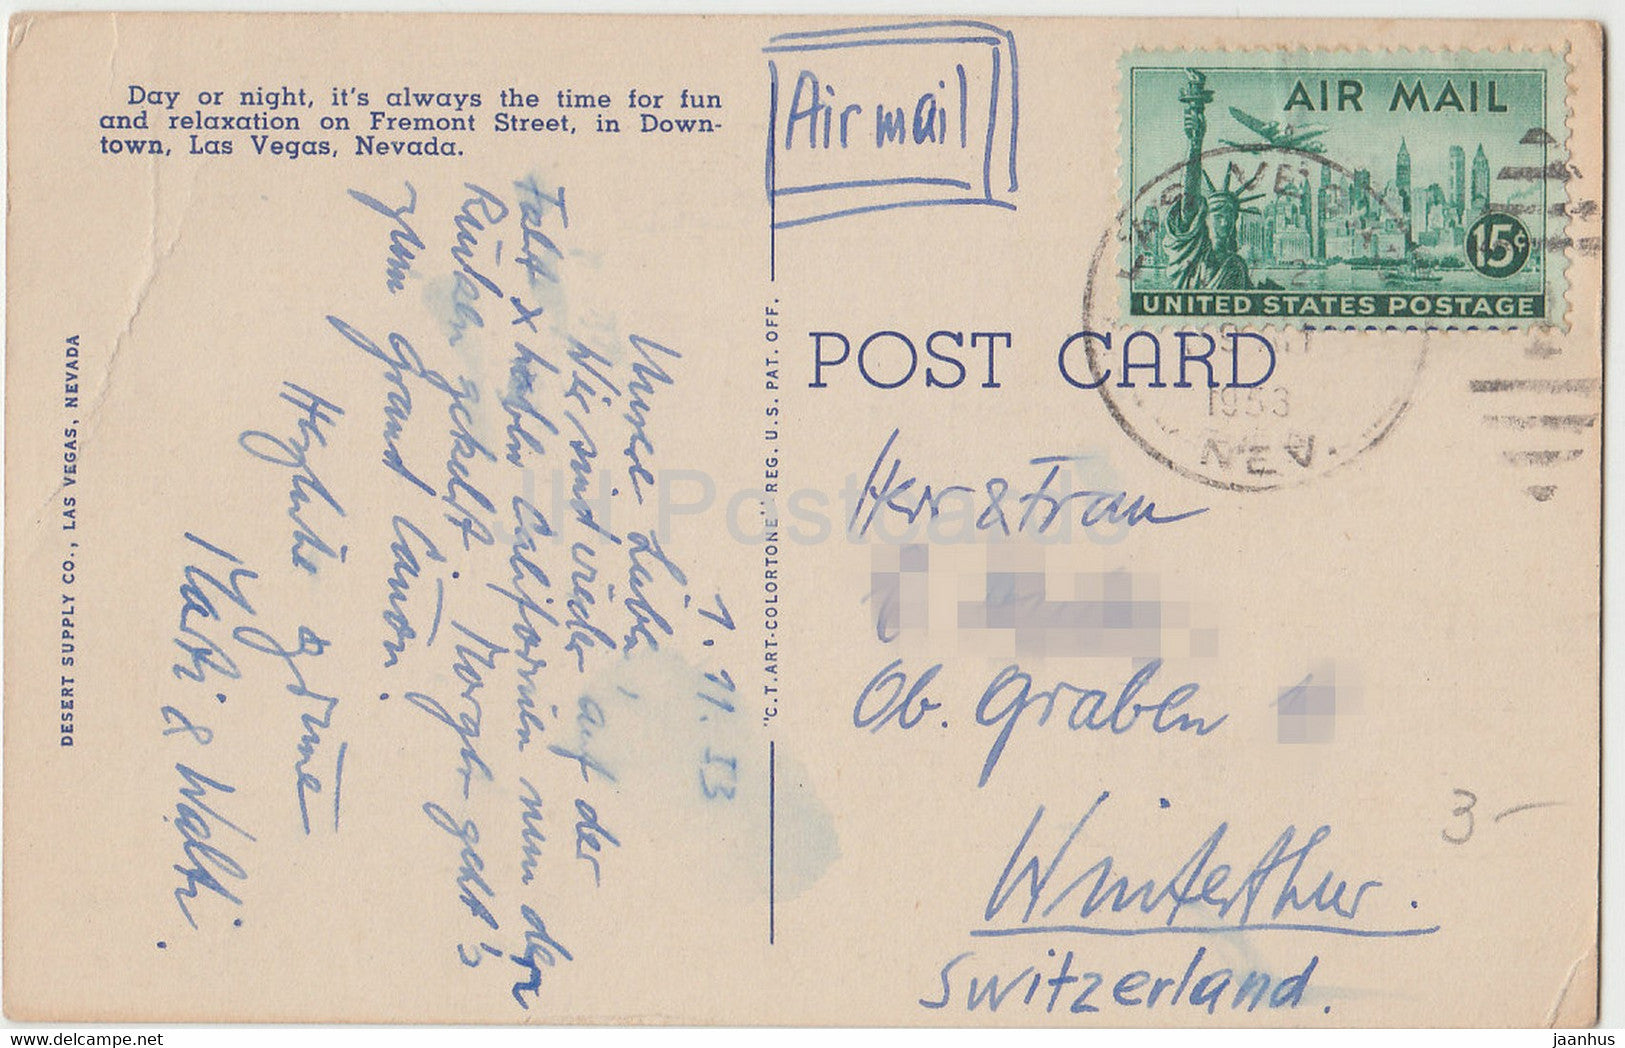 Day or night, it's always the time for fun
and relaxation on Fremont Street, in Down-
town, Las Vegas, Nevada.
Air mail
AIR MAIL
15¢
UNITED STATES POSTAGE
LAS VEGAS
1953
NEV.
POST CARD
DESERT SUPPLY CO., LAS VEGAS, NEVADA
"C.T. ART-COLORTONE" REG. U. S. PAT. OFF.
7. 11. 53
Unsere Lieben,
Wir sind wieder auf der
Fahrt x haben Californien nun den
Rücken gekehrt. Morgen geht's
zum Grand Cañon.
Herzliche Grüsse
Marti & Walti.
Herr & Frau
Ob. Graben
Winterthur.
Switzerland.
3-
JH Postcards
www.delcampe.net
jaanhus